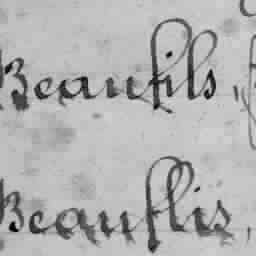 Beaufils,
Beauflis,